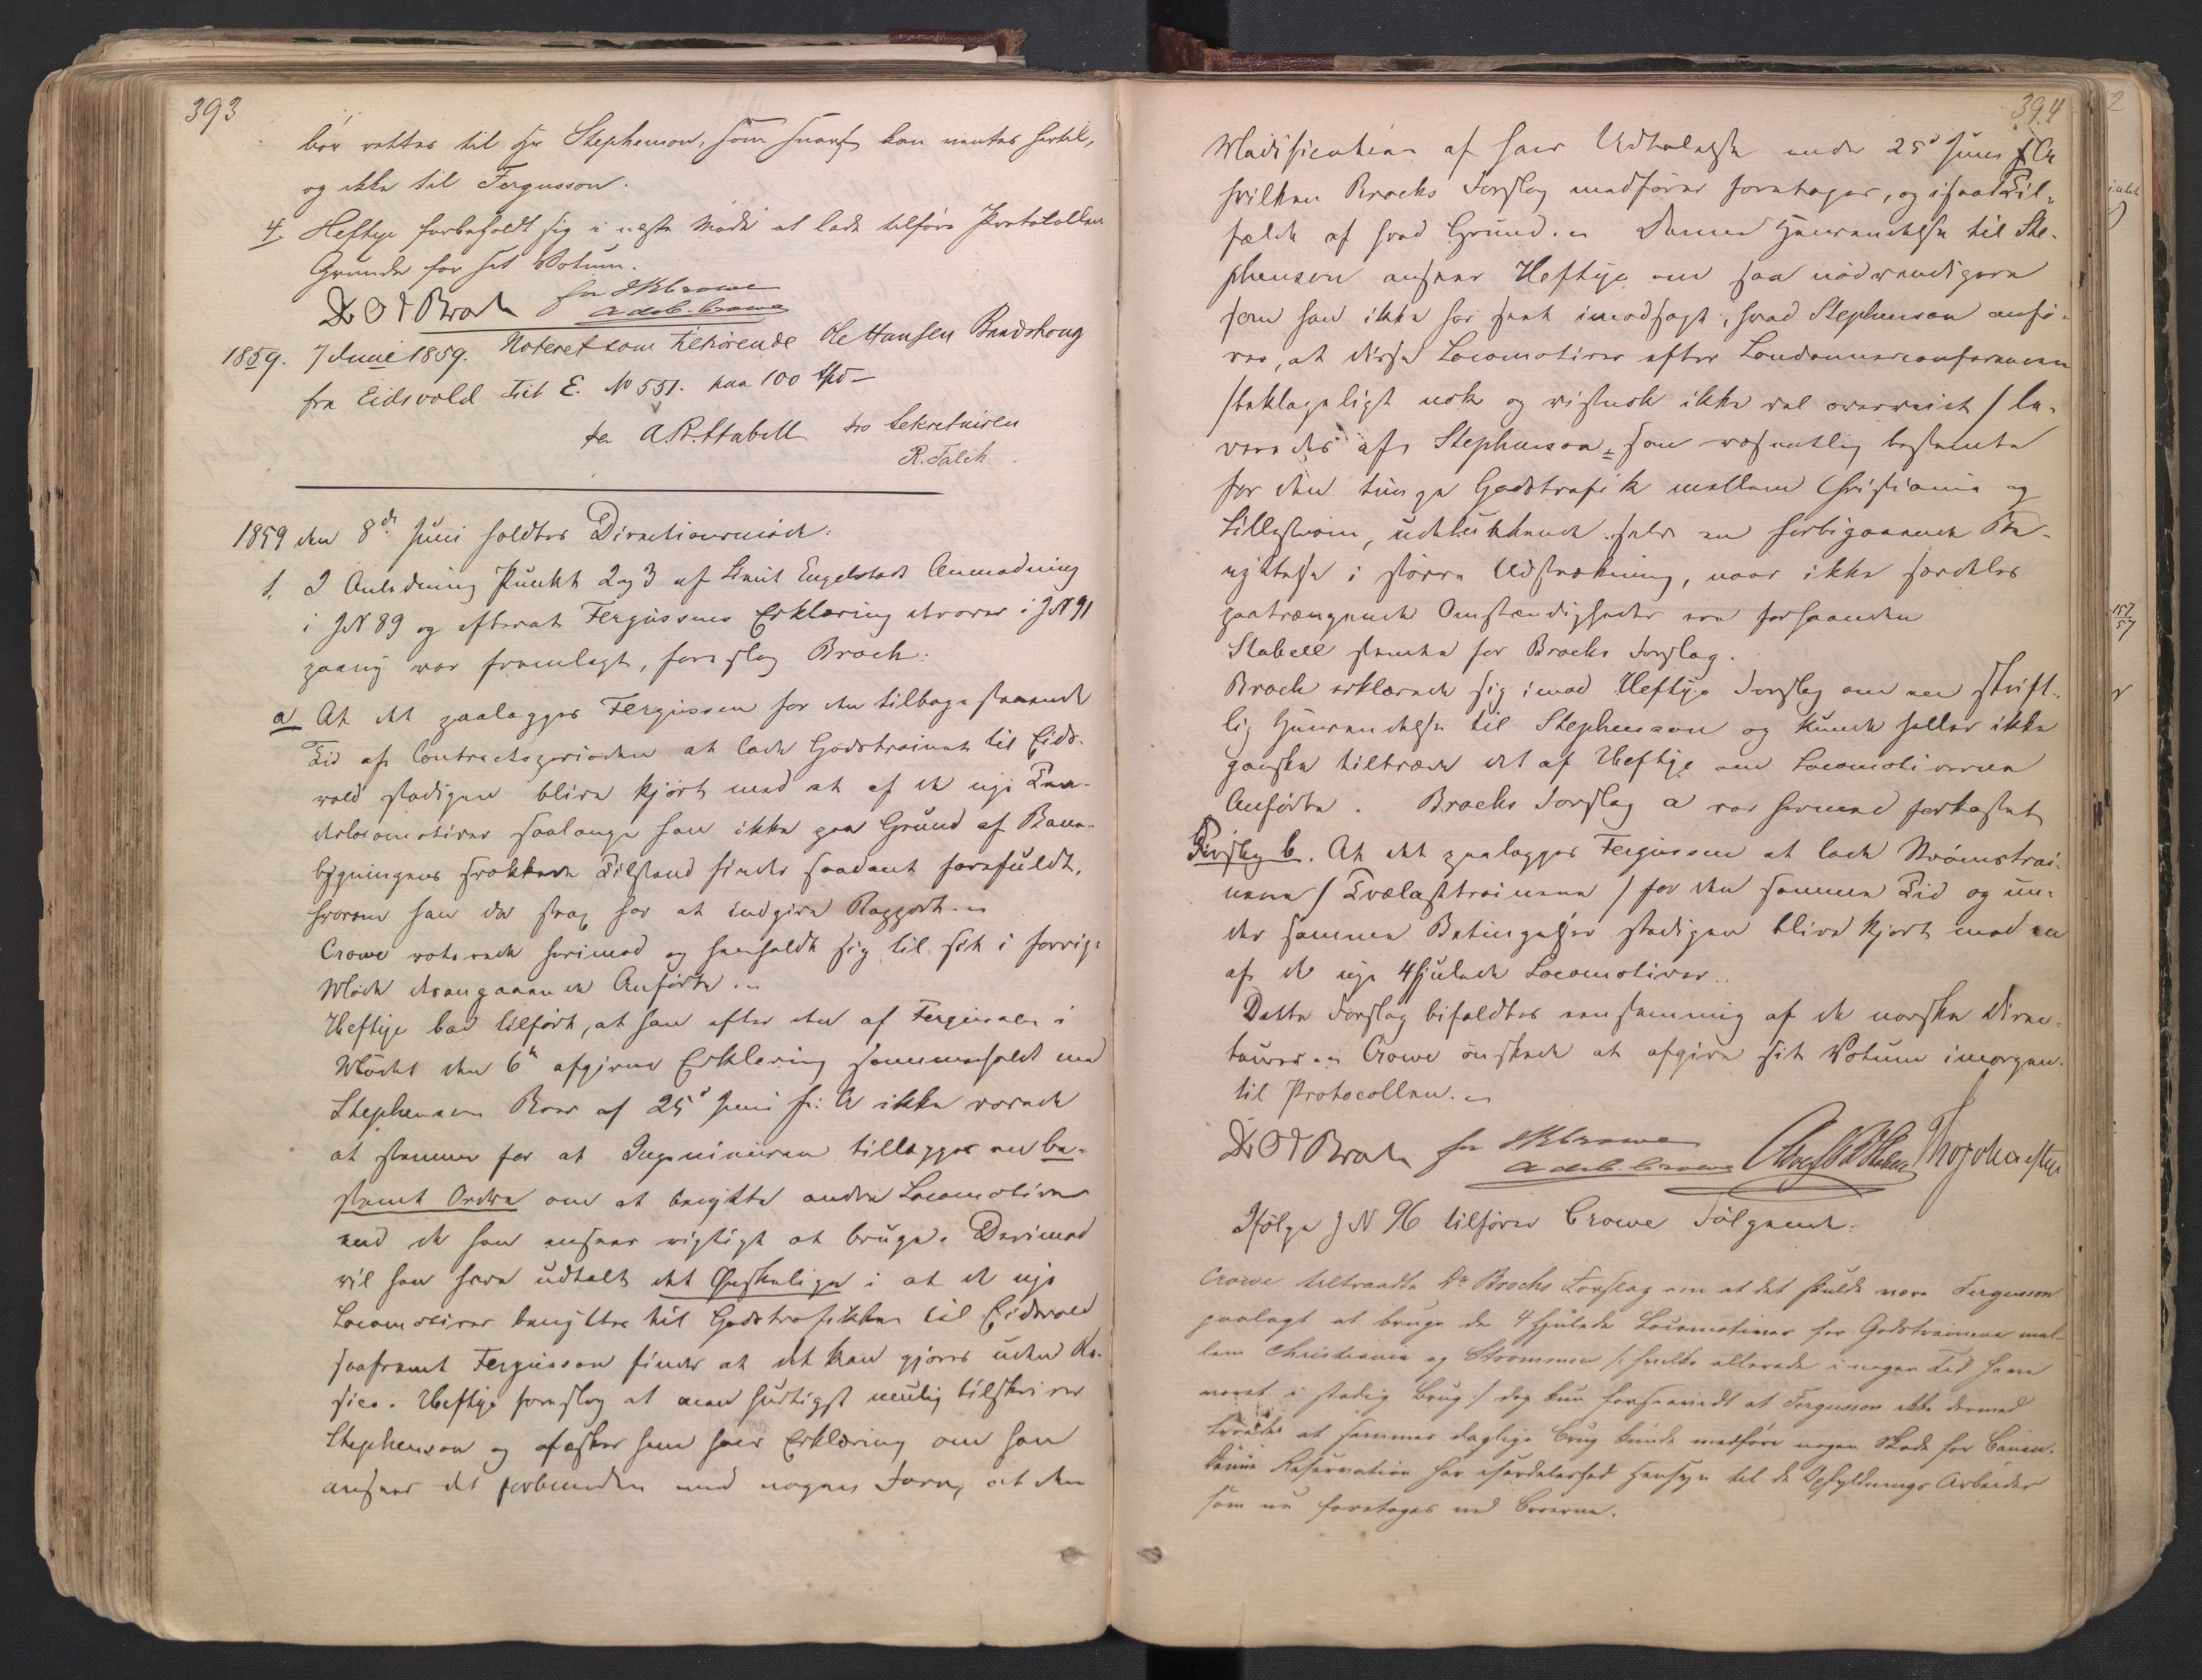 393
bør rettes til Hr Stephenson, som snart kan ventes hertil,
og ikke til Fergusson.
4. Heftye forbeholdt sig i næste Møde at lade tilføre Protokollen
Grunde for sit Votum.
Dr O J Broch for JR Crowe
1859. 7 Junie 1859. Noteret som tilhørende Ole Hansen
fra Eidsvold Lit E. No 551. paa 100 Spd –
A.R. Stabell pro Sekretairen
R. Falch.
1859 den 8de Juni holdtes Directionsmøde:
1. I Anledning Punkt 2 og 3 af Engelstads Anmodning
i JN 89 og efterat Fergussons Erklæring derover i JN 91
paany var fremlagt, foreslog Broch:
a At det paalægges Fergusson for den tilbagestaaende
Tid af Contractsperioden at lade Godstrainet til Eids-
vold stadigen blive kjørt med et af de nye Ten-
derlocomotiver saalænge han ikke paa Grund af Bane-
bygningens svækkede Tilstand finder saadant farefuldt,
hvorom han da strax har at indgive Rapport. –
Crowe voterede herimod og henholdt sig til sit i forrige
Møde desangaaende Anførte. –
Heftye bad tilført, at han efter den af Fergusson i
Mødet den 6te afgivne Erklæring sammenholdt med
Stephensons Brev af 25d Juni f: A ikke vovede
at stemme for at Ingeniøren tillægges en be-
stemt Ordre om at benytte andre Locomotiver
end de han anseer rigtigt at bruge. Derimod
vil han have udtalt det Ønskelige i at de nye
Locomotiver benyttes til Godstrafikken til Eidsvold
saafremt Fergusson finder at det kan gjøres uden Ri-
sico. Heftye foreslog at man hurtigst mulig tilskriver
Stephenson og afæsker ham hans Erklæring om han
anseer det forbunden med nogen Fare, at den
394
Modification af hans Udtalelse under 25d Juni f A
hvilken Brochs Forslag medfører foretages, og i saa Til-
fælde af hvad Grund. – Denne Henvendelse til Ste-
phenson anseer Heftye om saa nødvendigere
som han ikke har seet imodsagt, hvad Stephenson anfø-
rer, at disse Locomotiver efter Londonnerconferencen
/beklageligt nok og vistnok ikke vel overveiet / le-
veredes af Stephenson som væsentlig bestemte
for den tunge Godstrafik mellem Christiania og
Lillestrøm, udelukkende selv en forbigaaende Be-
nyttelse i større Udstrækning, naar ikke særdeles
paatrængende Omstændigheder ere forhaanden
Stabell stemte for Brochs Forslag.
Broch erklærede sig imod Heftyes Forslag om en skrift-
lig Henvendelse til Stephenson og kunde heller ikke
ganske tiltræde det af Heftye om Locomotiverne
Anførte. Brochs Forslag a var hermed forkastet
Forslag b. At det paalægges Fergusson at lade Strømstrai-
nene / Trælasttrainene / for den samme Tid og un-
der samme Betingelser stadigen blive kjørt med en
af de nye 4 Hjulede Locomotiver.
Dette Forslag bifaldtes eenstemmig af de norske Direc-
teurer. – Crowe ønskede at afgive sit Votum imorgen
til Protocollen. –
Dr O J Broch for JR Crowe
Ifølge JN 96 tilfører Crowe Følgende:
Crowe tiltraadte Dr Brochs Forslag om at det skulde være Fergusson
paalagt at bruge de 4 Hjulede Locomotiver for Godstrainene mel-
lem Christiania og Strømmen /: hvilke allerede i nogen Tid have
været i stadig Brug :/ dog kun forsaavidt at Fergusson ikke dermed
troede at sammes daglige Brug kunde medføre nogen Skade for Banen.
Denne Reservation har isærdeleshed Hensyn til de Opfyldnings Arbeider
som nu foretages ved Broerne.